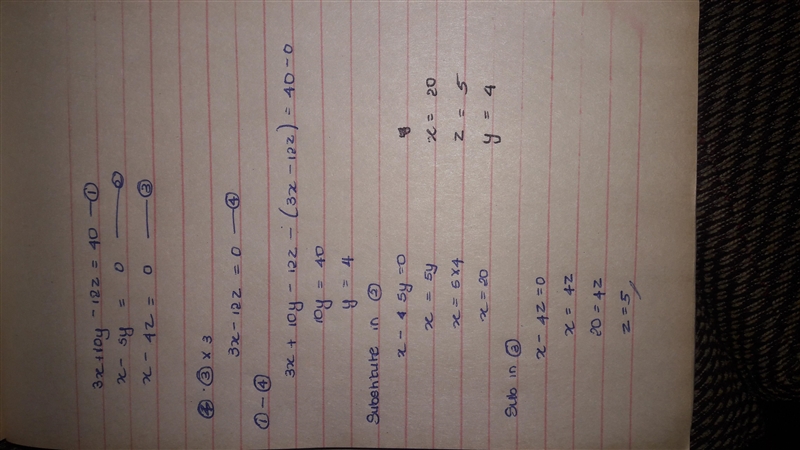 3x+10y - 12z = 40 — ①
x - 5y = 0 — ②
x - 4z = 0 — ③
③ x 3
3x - 12z = 0 — ④
① - ④
3x + 10y - 12z - (3x - 12z) = 40 - 0
10y = 40
y = 4
Substitute in ②
x - 5y = 0
x = 5y
x = 5 x 4
x = 20
Sub in ③
x - 4z = 0
x = 4z
20 = 4z
z = 5
x = 20
z = 5
y = 4